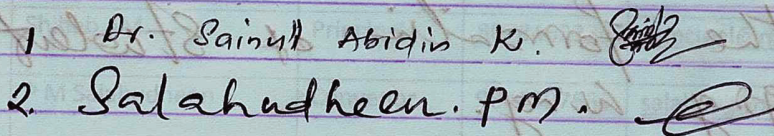 1 Dr. Sainul Abidin K.
2. Salahudheen. P.M.